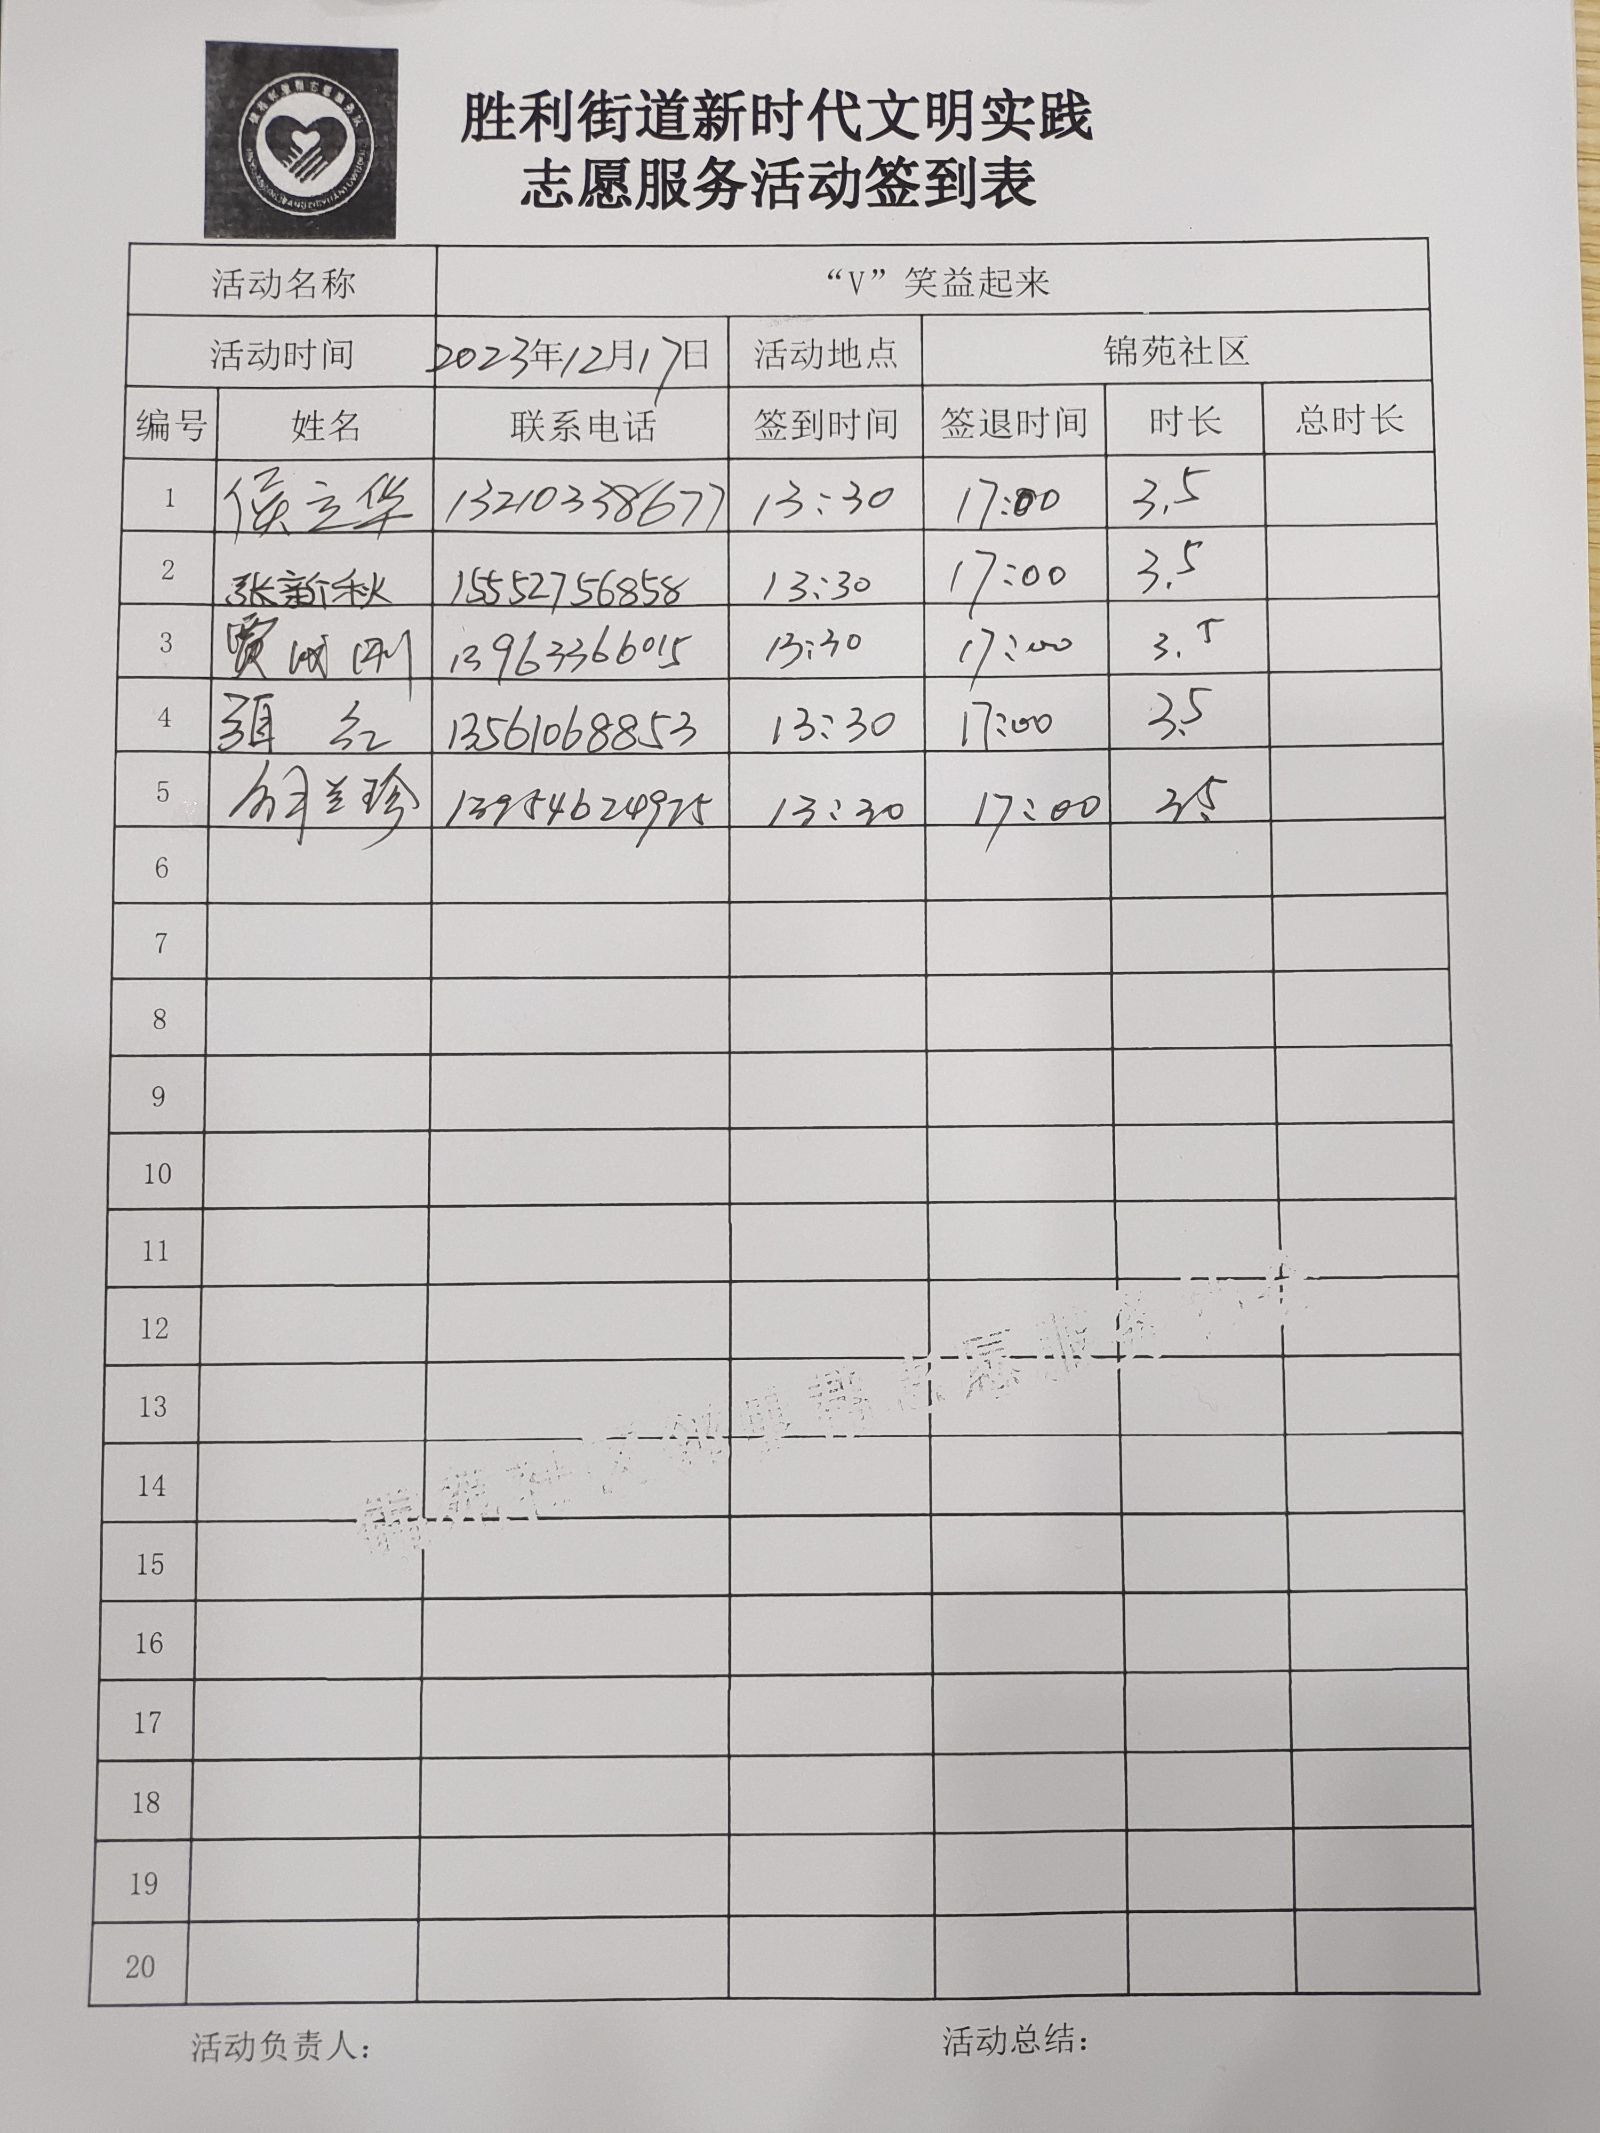 胜利街道新时代文明实践
志愿服务活动签到表
活动名称 “V”笑益起来
活动时间 2023年12月17日 活动地点 锦苑社区
编号 姓名 联系电话 签到时间 签退时间 时长 总时长
1 侯立华 13210338677 13:30 17:00 3.5
2 张新秋 15552756858 13:30 17:00 3.5
3 贾成刚 13963366015 13:30 17:00 3.5
4 张红 13561068853 13:30 17:00 3.5
5 兰珍 13954624975 13:30 17:00 3.5
6
7
8
9
10
11
12
13
14
15
16
17
18
19
20
活动负责人: 活动总结: